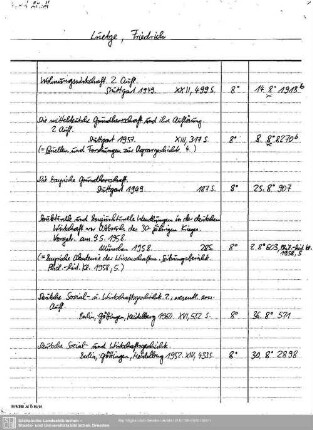 Luetge, Friedrich
Wohnungswirtschaft. 2. Aufl.
Stuttgart 1949. XXII, 499 S. 8° 14. 8° 1913 b
Die mitteldeutsche Grundherrschaft und ihre Auflösung
2. Aufl.
Stuttgart 1957. XII, 317 S. 8° 8. 8° 8270 b
(= Quellen und Forschungen zur Agrargeschichte 4.)
Die bayrische Grundherrschaft.
Stuttgart 1949. 187 S. 8° 25. 8° 907
Strukturelle und konjunkturelle Wandlungen in der deutschen
Wirtschaft vor Ausbruch des 30-jährigen Krieges.
Vorget. am 9.5.1958.
München 1958. 28 S. 8°
1958, 5
(= Bayrische Akademie der Wissenschaften. Sitzungsberichte.
Phil.-hist. Kl. 1958, 5.)
Deutsche Sozial- u. Wirtschaftsgeschichte. 2., verm. u. verb.
Aufl.
Berlin, Göttingen, Heidelberg 1960. XVI, 552 S. 8° 36. 8° 571
Deutsche Sozial- und Wirtschaftsgeschichte.
Berlin, Göttingen, Heidelberg 1952. XIV, 433 S. 8° 30. 8° 2898